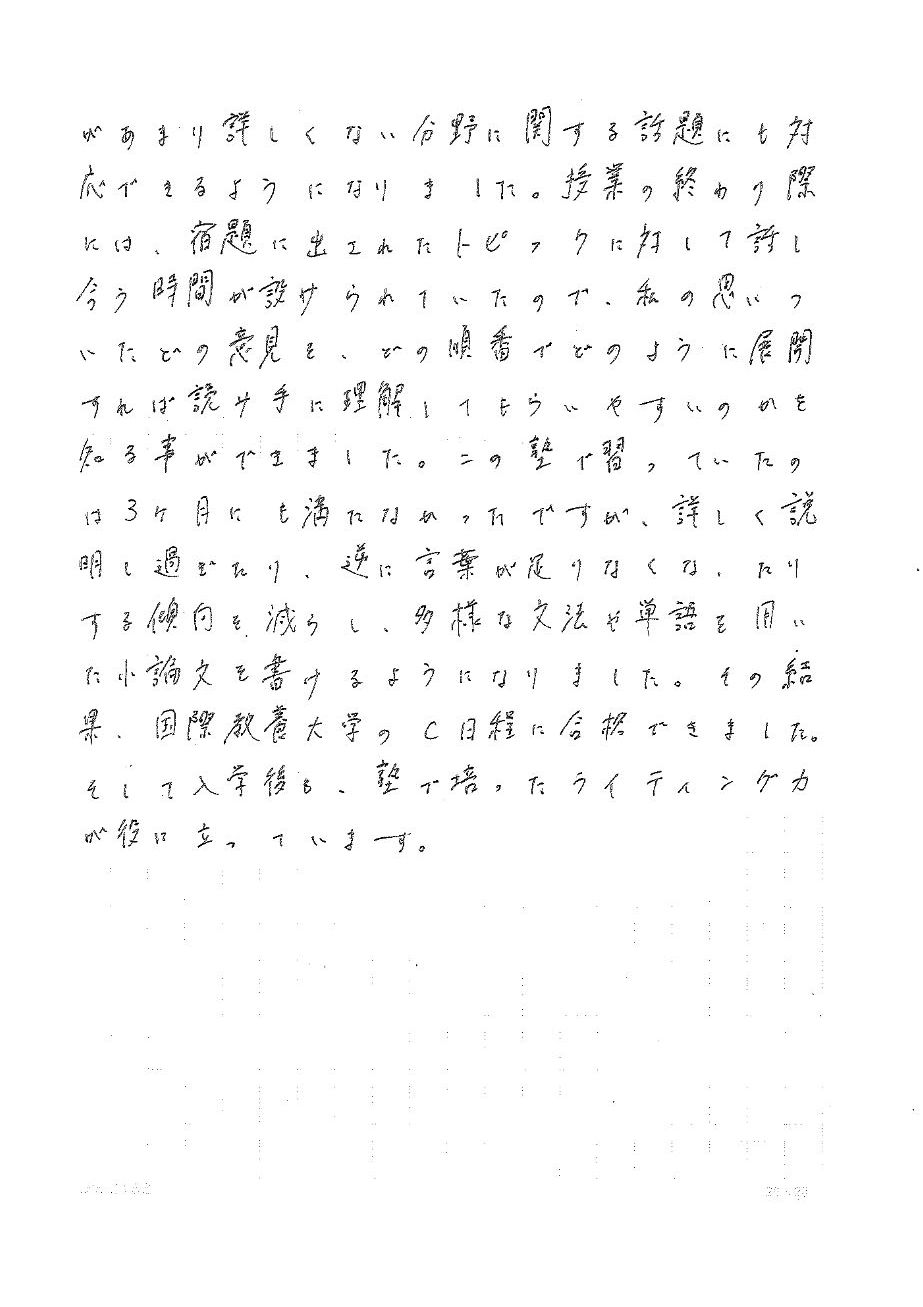 があまり詳しくない分野に関する話題にも対
応できるようになりました。授業の終わり際
には、宿題に出されたトピックに対して話し
合う時間が設けられていたので、私の思いつ
いたどの意見を、どの順番でどのように展開
すれば読み手に理解してもらいやすいのかを
知る事ができました。この塾で習っていたの
は3ケ月にも満たなかったですが、詳しく説
明し過ぎたり、逆に言葉が足りなくなったり
する傾向を減らし、多様な文法や単語を用い
た小論文を書けるようになりました。その結
果、国際教養大学のC日程に合格できました。
そして入学後も、塾で培ったライティング力
が役に立っています。